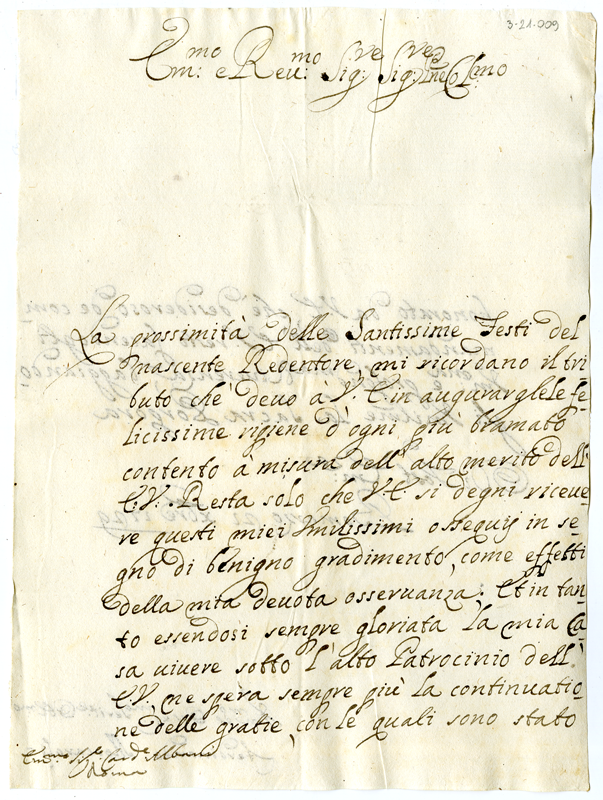 3-21-009
Em:mo e Reu:mo Sig:re Sig:re Pne Col:mo
La prossimità delle Santissime Festi del
nascente Redentore, mi ricordano il tri
buto chè deuo à V. E. in augurarglele fe
licissime ripiene d'ogni più bramato
contento à misura dell'alto merito dell'
E. V. Resta solo che V. E. si degni riceue
re questi miei Vmilissimi ossequij in se
gno di benigno gradimento, come effetti
della mia deuota osseruanza. Et in tan
to essendosi sempre gloriata la mia Ca
sa uiuere sotto l'alto Patrocinio dell'
E. V. ne spera sempre più la continuatio
ne delle gratie, con le quali sono stato
Em:mo Sig:re Card:le Albani
Roma